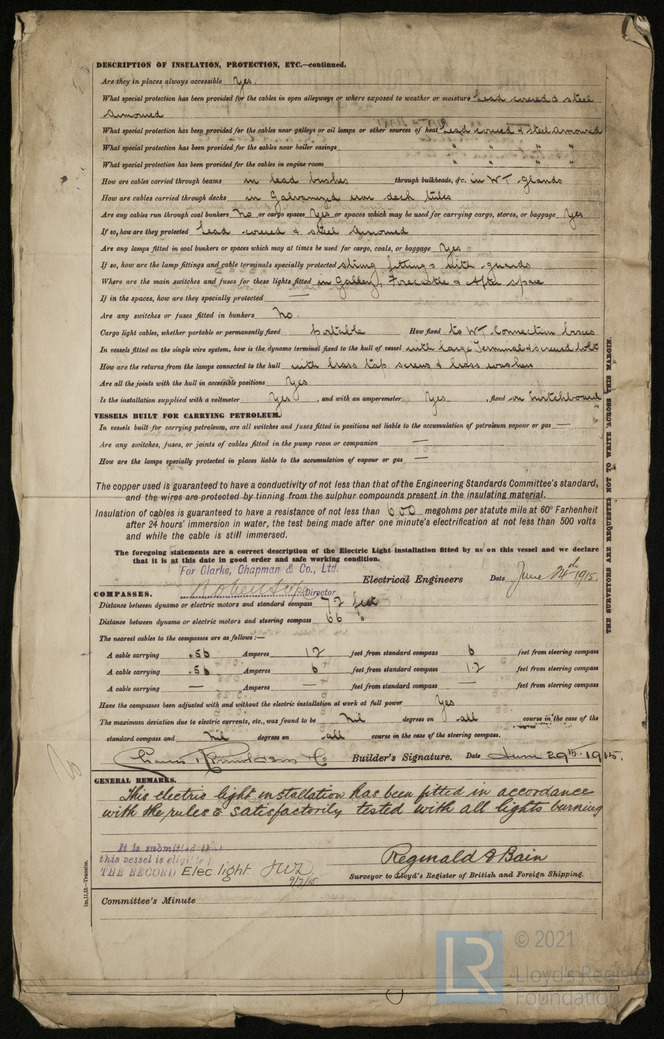 DESCRIPTION OF INSULATION, PROTECTION, ETC.—continued.
Are they in places always accessible Yes.
What special protection has been provided for the cables in open alleyways or where exposed to weather or moisture Lead covered & steel
Armoured
What special protection has been provided for the cables near galleys or oil lamps or other sources of heat Lead covered & steel armoured
What special protection has been provided for the cables near boiler casings " " " "
What special protection has been provided for the cables in engine room " " " "
How are cables carried through beams in lead bushes through bulkheads, &c. in W.T. glands
How are cables carried through decks in Galvanized iron deck tubes
Are any cables run through coal bunkers No or cargo spaces Yes or spaces which may be used for carrying cargo, stores, or baggage Yes
If so, how are they protected Lead covered & steel Armoured
Are any lamps fitted in coal bunkers or spaces which may at times be used for cargo, coals, or baggage Yes
If so, how are the lamp fittings and cable terminals specially protected strong fittings with guards
Where are the main switches and fuses for these lights fitted in Galley, Forecastle & After space
If in the spaces, how are they specially protected —
Are any switches or fuses fitted in bunkers No.
Cargo light cables, whether portable or permanently fixed portable How fixed to W.T. Connection boxes
In vessels fitted on the single wire system, how is the dynamo terminal fixed to the hull of vessel with large Terminal & screwed bolt
How are the returns from the lamps connected to the hull with brass tap screws & brass washers
Are all the joints with the hull in accessible positions Yes
Is the installation supplied with a voltmeter Yes , and with an amperemeter Yes , fixed on Switchboard
VESSELS BUILT FOR CARRYING PETROLEUM.
In vessels built for carrying petroleum, are all switches and fuses fitted in positions not liable to the accumulation of petroleum vapour or gas —
Are any switches, fuses, or joints of cables fitted in the pump room or companion —
How are the lamps specially protected in places liable to the accumulation of vapour or gas —
The copper used is guaranteed to have a conductivity of not less than that of the Engineering Standards Committee's standard,
and the wires are protected by tinning from the sulphur compounds present in the insulating material.
Insulation of cables is guaranteed to have a resistance of not less than 600 megohms per statute mile at 60° Farhenheit
after 24 hours' immersion in water, the test being made after one minute's electrification at not less than 500 volts
and while the cable is still immersed.
The foregoing statements are a correct description of the Electric Light installation fitted by us on this vessel and we declare
that it is at this date in good order and safe working condition.
For Clarke, Chapman & Co., Ltd.
Director Electrical Engineers Date June 24th 1915.
COMPASSES.
Distance between dynamo or electric motors and standard compass 72 feet
Distance between dynamo or electric motors and steering compass 66 "
The nearest cables to the compasses are as follows:—
A cable carrying .56 Amperes 12 feet from standard compass 6 feet from steering compass
A cable carrying .56 Amperes 6 feet from standard compass 12 feet from steering compass
A cable carrying — Amperes — feet from standard compass — feet from steering compass
Have the compasses been adjusted with and without the electric installation at work at full power Yes
The maximum deviation due to electric currents, etc., was found to be Nil degrees on all course in the case of the
standard compass and Nil degrees on all course in the case of the steering compass.
Builder's Signature. Date June 29th 1915.
GENERAL REMARKS.
This electric light installation has been fitted in accordance
with the rules & satisfactorily tested with all lights burning
It is submitted that
this vessel is eligible
THE RECORD Elec. light JWD
9/7/15
Reginald J Bain
Surveyor to Lloyd's Register of British and Foreign Shipping.
Committee's Minute
THE SURVEYORS ARE REQUESTED NOT TO WRITE ACROSS THIS MARGIN.
© 2021
Lloyd's Register
Foundation
LR